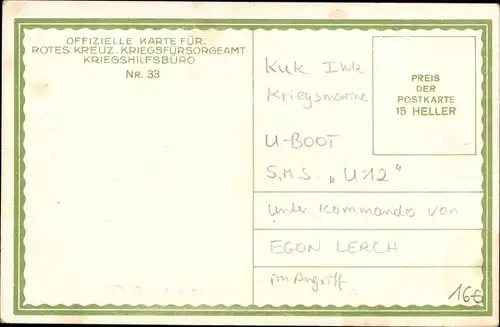 OFFIZIELLE KARTE FÜR:
ROTES KREUZ. KRIEGSFÜRSORGEAMT
KRIEGSHILFSBÜRO
NR. 33
PREIS
DER
POSTKARTE
15 HELLER
KuK
Kriegsmarine
U-BOOT
S.M.S. „U12"
unter Kommando von
EGON LERCH
im Angriff
16€